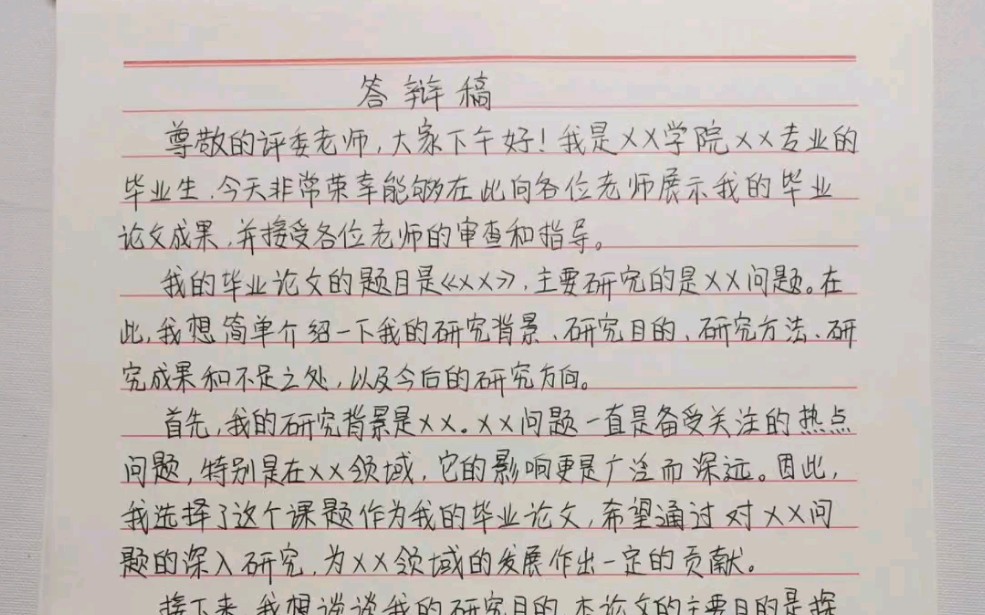 答辩稿
尊敬的评委老师,大家下午好!我是××学院××专业的
毕业生.今天非常荣幸能够在此向各位老师展示我的毕业
论文成果,并接受各位老师的审查和指导。
我的毕业论文的题目是《××》,主要研究的是××问题。在
此,我想简单介绍一下我的研究背景、研究目的、研究方法、研
究成果和不足之处,以及今后的研究方向。
首先,我的研究背景是××。××问题一直是备受关注的热点
问题,特别是在××领域,它的影响更是广泛而深远。因此,
我选择了这个课题作为我的毕业论文,希望通过对××问
题的深入研究,为××领域的发展作出一定的贡献。
接下来,我想谈谈我的研究目的.本论文的主要目的是探